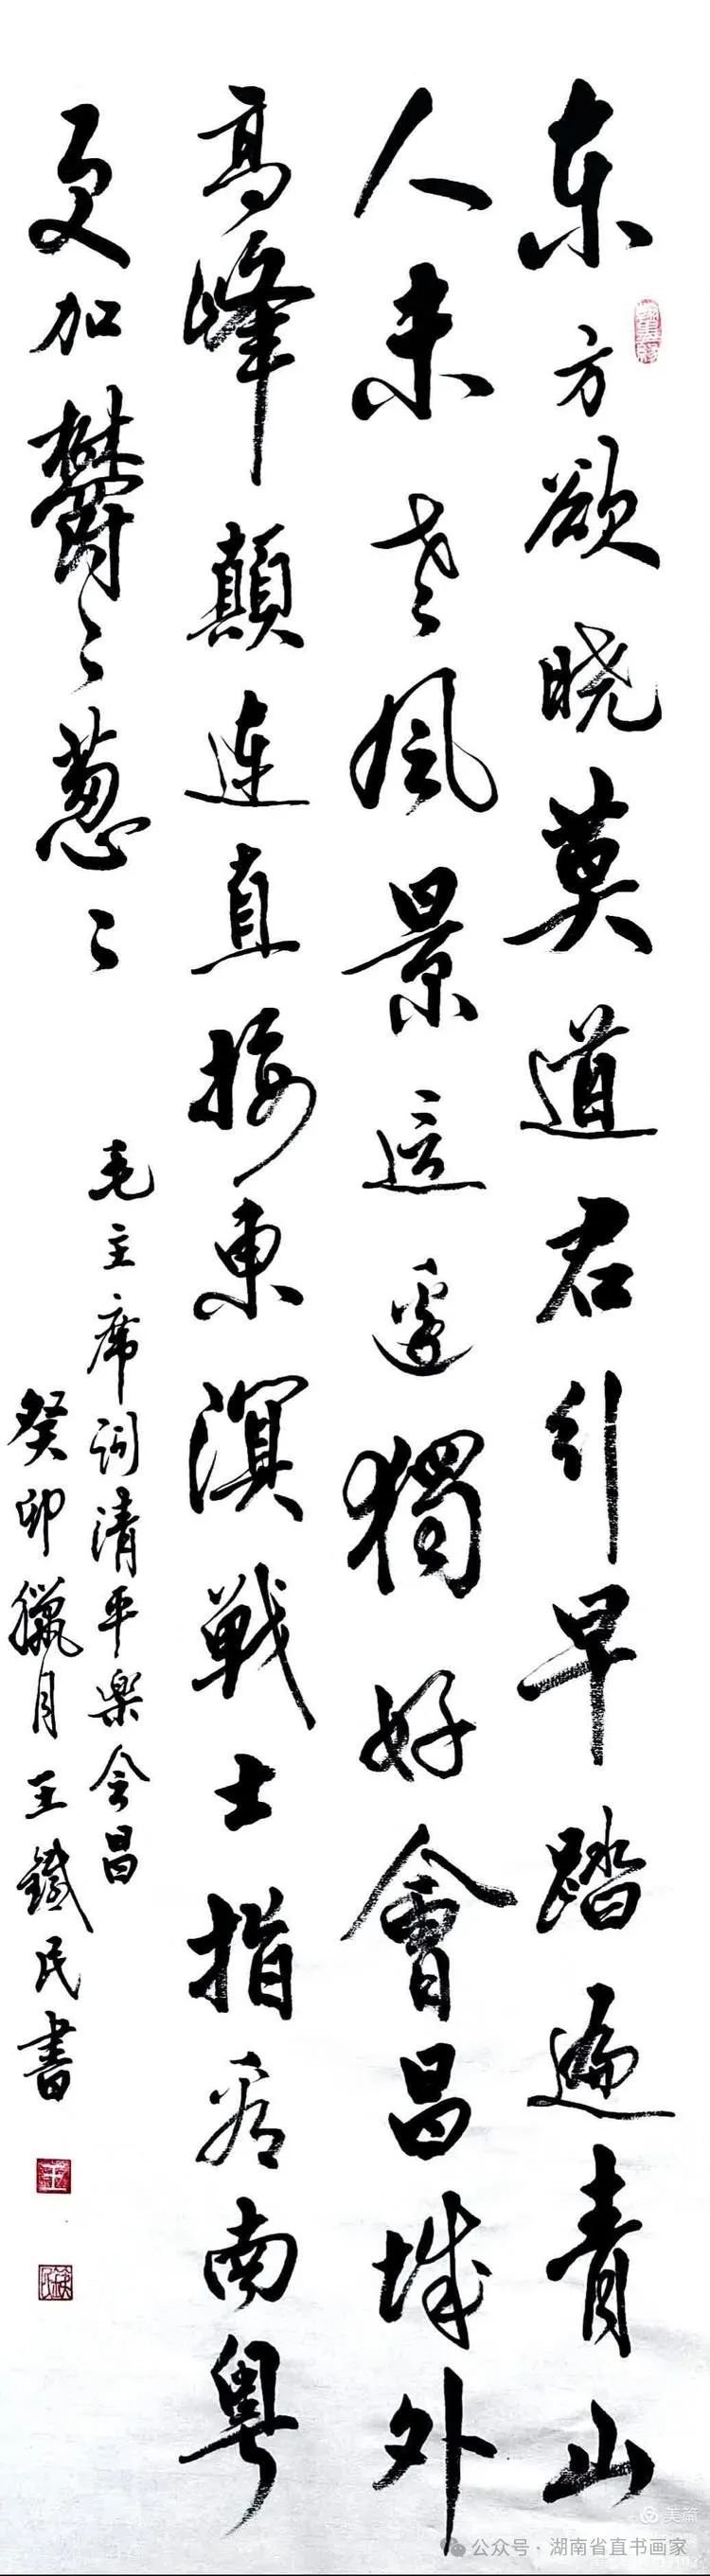 东方欲晓莫道君引早踏遍青山
人未老风景这边獨好會昌城外
高峰顛连直接東溟戦士指看南粤
更加鬱〻葱〻
毛主席词清平樂会昌
癸卯臘月王鐵民書
美篇
公众号·湖南省直书画家